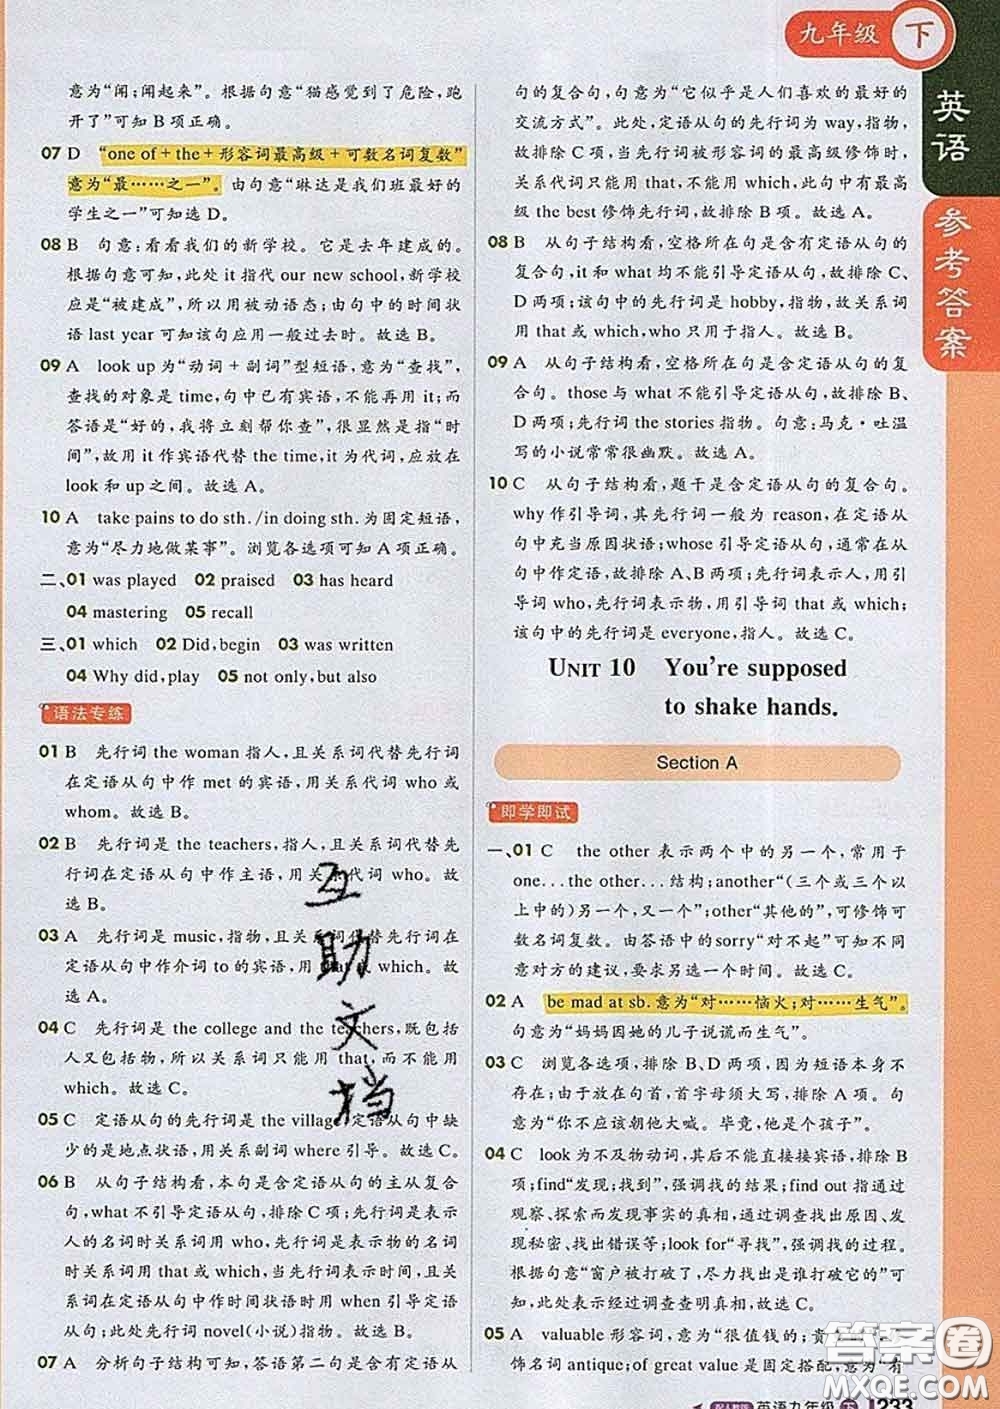 九年级 下
英语
参考答案
意为“闻;闻起来”。根据句意“猫感觉到了危险,跑
开了”可知 B 项正确。
07 D “one of + the + 形容词最高级 + 可数名词复数”
意为“最……之一”。由句意“琳达是我们班最好的
学生之一”可知选 D。
08 B 句意:看看我们的新学校。它是去年建成的。
根据句意可知,此处 it 指代 our new school,新学校
应是“被建成”,所以用被动语态;由句中的时间状
语 last year 可知该句应用一般过去时。故选 B。
09 A look up 为“动词 + 副词”型短语,意为“查找”,
查找的对象是 time,句中已有宾语,不能再用 it;而
答语是“好的,我将立刻帮你查”,很显然是指“时
间”,故用 it 作宾语代替 the time,it 为代词,应放在
look 和 up 之间。故选 A。
10 A take pains to do sth. /in doing sth. 为固定短语,
意为“尽力地做某事”。浏览各选项可知 A 项正确。
二、01 was played 02 praised 03 has heard
04 mastering 05 recall
三、01 which 02 Did, begin 03 was written
04 Why did, play 05 not only, but also
语法专练
01 B 先行词 the woman 指人,且关系词代替先行词
在定语从句中作 met 的宾语,用关系代词 who 或
whom。故选 B。
02 B 先行词是 the teachers,指人,且关系词代替先
行词在从句中作主语,用关系代词 who。故
选 B。
03 A 先行词是 music,指物,且关系词代替先行词在
定语从句中作介词 to 的宾语,用 that 或 which。故
选 A。
04 C 先行词是 the college and the teachers,既包括
人又包括物,所以关系词只能用 that,而不能用
which。故选 C。
05 C 定语从句的先行词是 the village,定语从句中缺
少的是地点状语,用关系副词 where 引导。故选 C。
06 B 从句子结构看,本句是含定语从句的主从复合
句,what 不引导定语从句,排除 C 项;先行词是表示
人的名词时关系词用 who;先行词是表示物的名词
时关系词用 that 或 which,当先行词表示时间,且关
系词在定语从句中作时间状语时用 when 引导定语
从句;此处先行词 novel(小说)指物。故选 B。
07 A 分析句子结构可知,答语第二句是含有定语从
句的复合句,句意为“它似乎是人们喜欢的最好的
交流方式”。此处,定语从句的先行词为 way,指物,
故排除 C 项,当先行词被形容词的最高级修饰时,
关系代词只能用 that,不能用 which,此句中有最高
级 the best 修饰先行词,故排除 B 项。故选 A。
08 B 从句子结构看,空格所在句是含有定语从句的
复合句,it 和 what 均不能引导定语从句,故排除 C、
D 两项;该句中的先行词是 hobby,指物,故关系词
用 that 或 which,who 只用于指人。故选 B。
09 A 从句子结构看,空格所在句是含定语从句的复
合句。those 与 what 不能引导定语从句,故排除 B、
D 两项;先行词 the stories 指物。句意:马克·吐温
写的小说常常很幽默。故选 A。
10 C 从句子结构看,题干是含定语从句的复合句。
why 作引导词,其先行词一般为 reason,在定语从
句中充当原因状语;whose 引导定语从句,通常在从
句中作定语,故排除 A、B 两项;先行词表示人,用引
导词 who,先行词表示物,用引导词 that 或 which;
该句中的先行词是 everyone,指人。故选 C。
UNIT 10 You're supposed
to shake hands.
Section A
即学即试
一、01 C the other 表示两个中的另一个,常用于
one... the other... 结构;another“(三个或三个以
上中的)另一个,又一个”;other“其他的”,可修饰可
数名词复数。由答语中的 sorry“对不起”可知不同
意对方的建议,要求另选一个时间。故选 C。
02 A be mad at sb. 意为“对……恼火;对……生气”。
句意为“妈妈因她的儿子说谎而生气”。
03 C 浏览各选项,排除 B、D 两项,因为短语本身不
存在。由于放在句首,首字母要大写,排除 A 项。句
意为“你不应该朝他大喊。毕竟,他是个孩子”。
04 C look 为不及物动词,其后不能直接接宾语,排除 B
项;find“发现;找到”,强调找的结果;find out 指通过
观察、探索而发现事实的真相,通过调查找出原因、发
现秘密、找出错误等;look for“寻找”,强调找的过程。
根据句意“窗户被打破了,尽力找出是谁打破它的”可
知,此处表示经过调查查明真相。故选 C。
05 A valuable 形容词,意为“很值钱的;贵
饰名词 antique;of great value 是固定搭配,意为“有
配人教版 英语九年级 下 1233
互助文档
答案圈
MXQE.COM